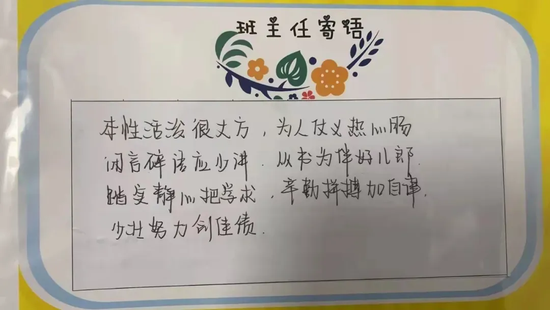 班主任寄语
本性活泼很大方，为人仗义热心肠
闲言碎语应少讲．以书为伴好儿郎．
踏实静心把学求，辛勤拼搏加自律．
少壮努力创佳绩．